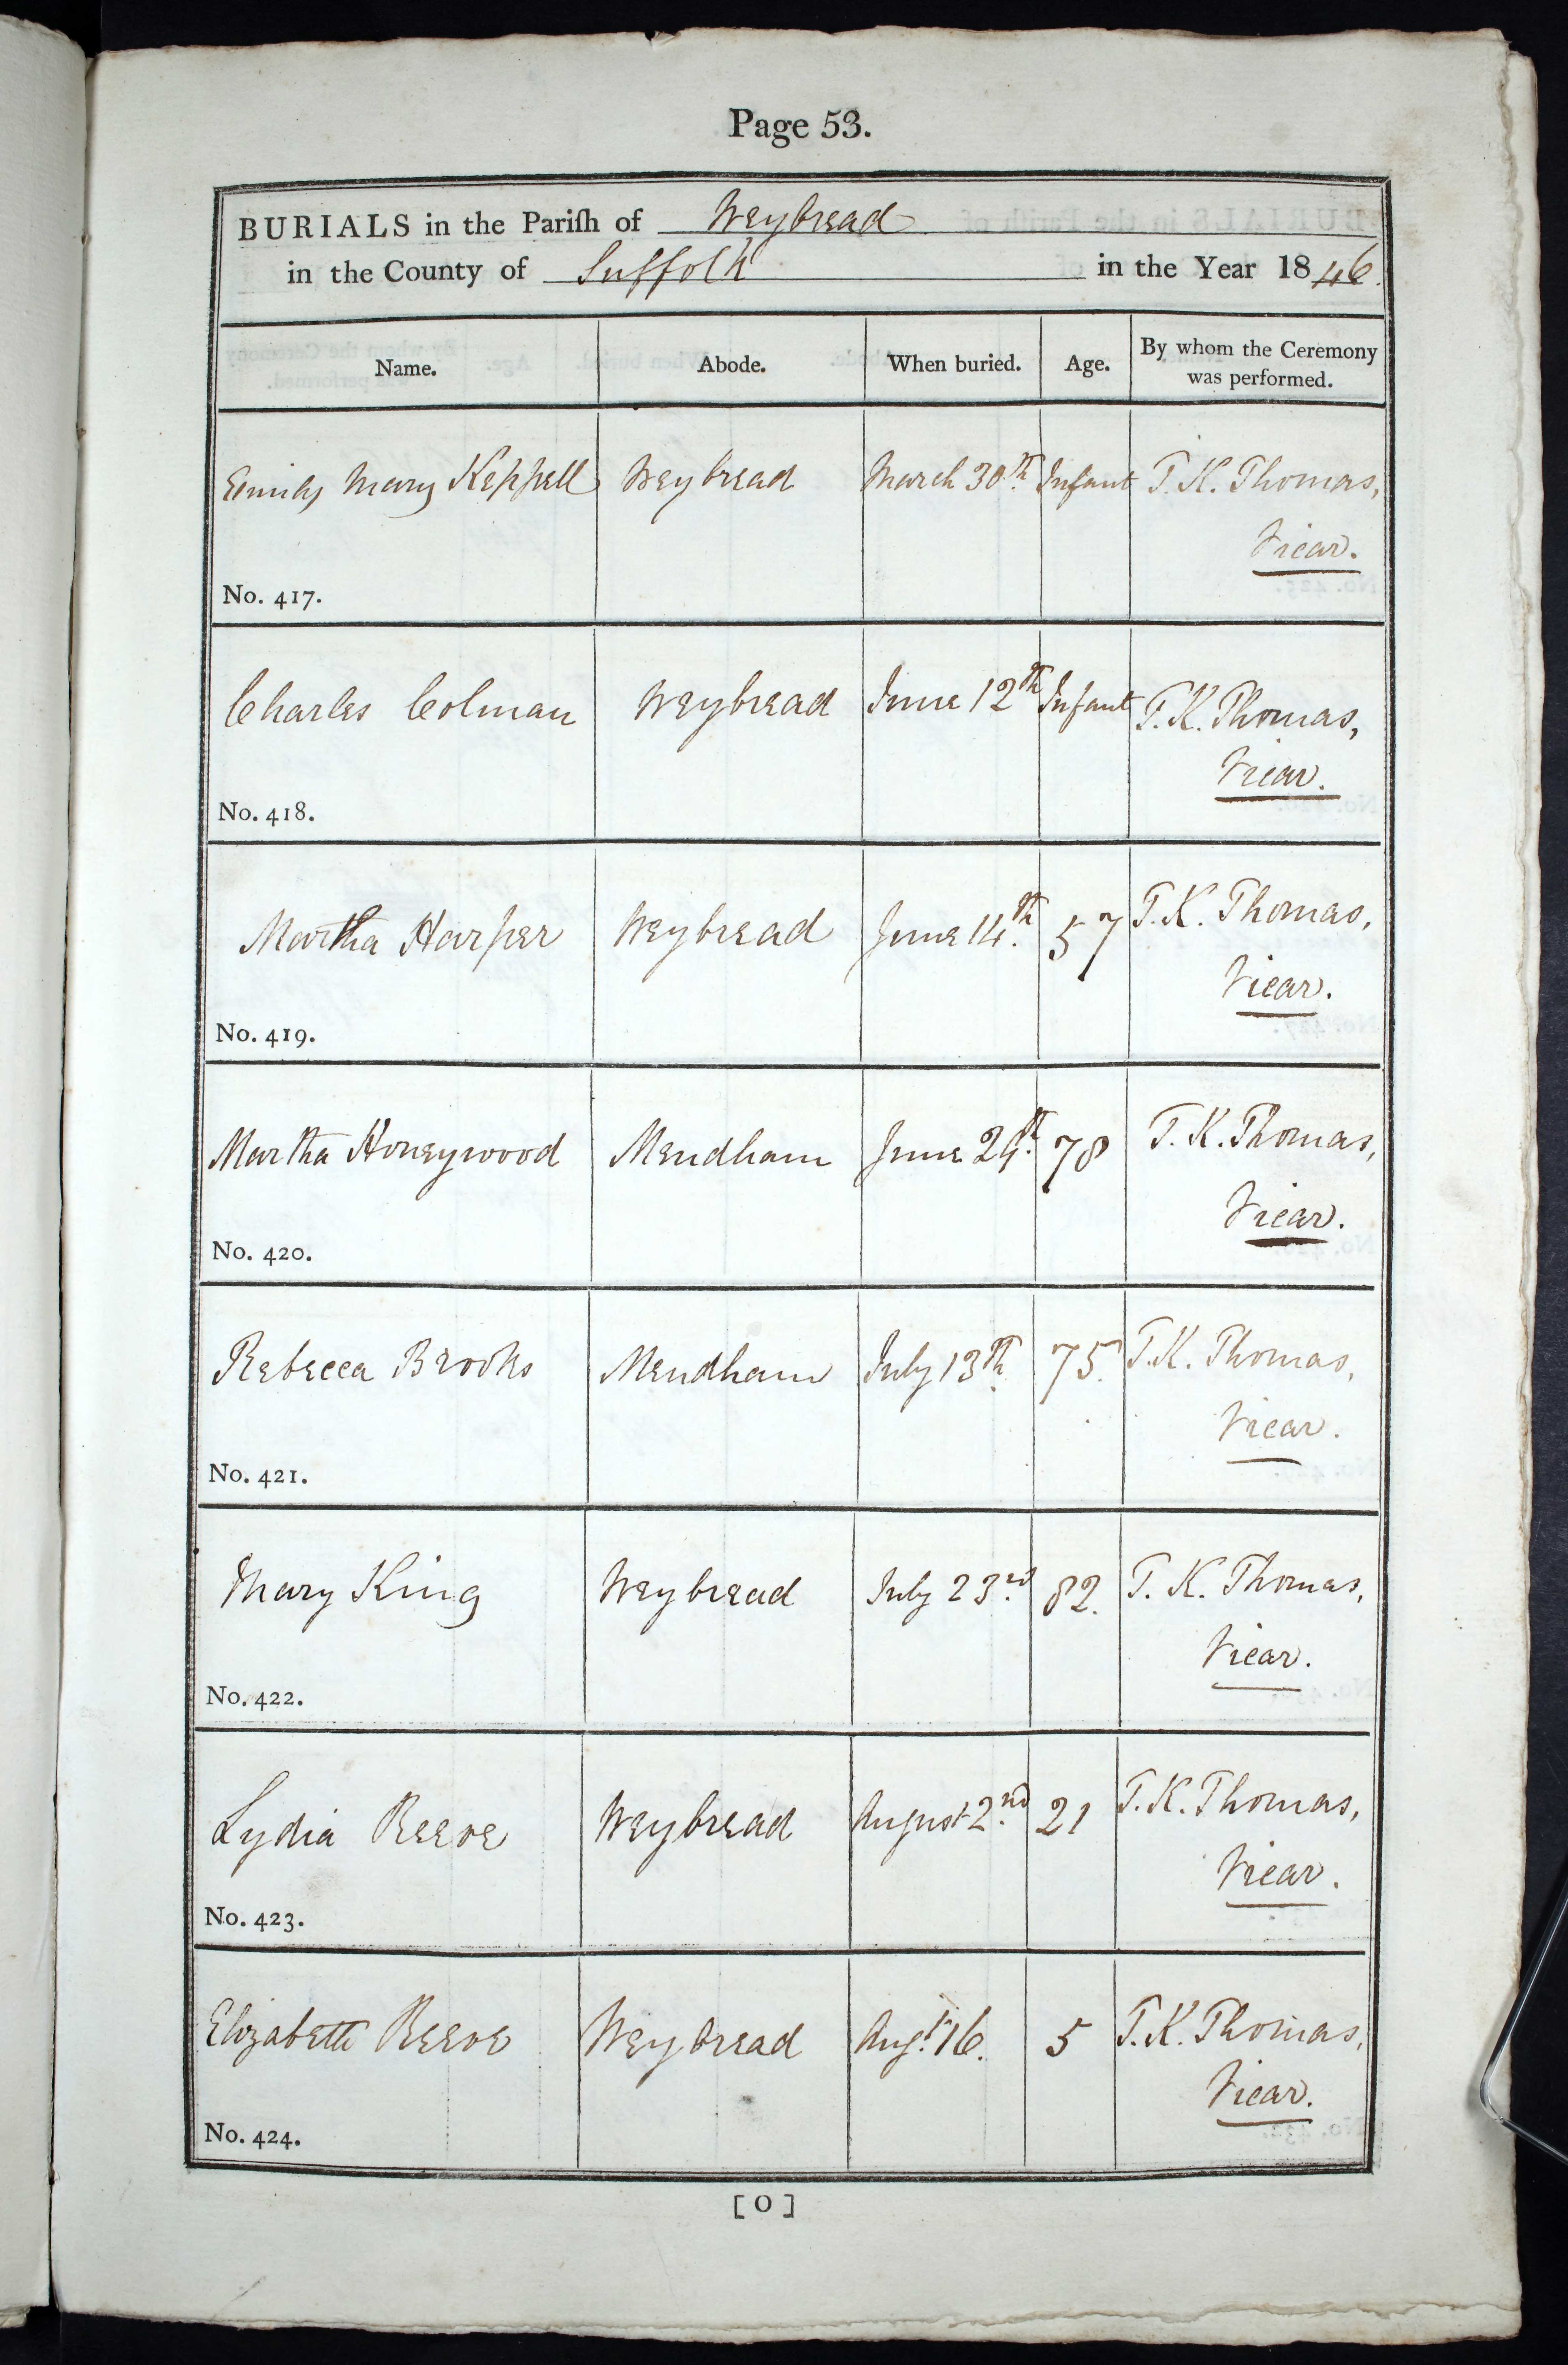 Page 53.
BURIALS in the Pariſh of Weybread
in the County of Suffolk in the Year 1846.
Name. Abode. When buried. Age. By whom the Ceremony
was performed.
Emily Mary Keppell Weybread March 30th. Infant T. K. Thomas,
Vicar.
No. 417.
Charles Colman Weybread June 12th Infant T. K. Thomas,
Vicar.
No. 418.
Martha Harper Weybread June 14th. 57 T. K. Thomas,
Vicar.
No. 419.
Martha Honeywood Mendham June th. 78 T. K. Thomas,
Vicar.
No. 420.
Rebecca Brooks Mendham July 13th. 75. T. K. Thomas,
Vicar.
No. 421.
Mary King Weybread July 23rd. 82. T. K. Thomas,
Vicar.
No. 422.
Lydia Reeve Weybread August 2nd. 21 T. K. Thomas,
Vicar.
No. 423.
Elizabeth Reeve Weybread Augt. 16. 5 T. K. Thomas,
Vicar.
No. 424.
[ O ]